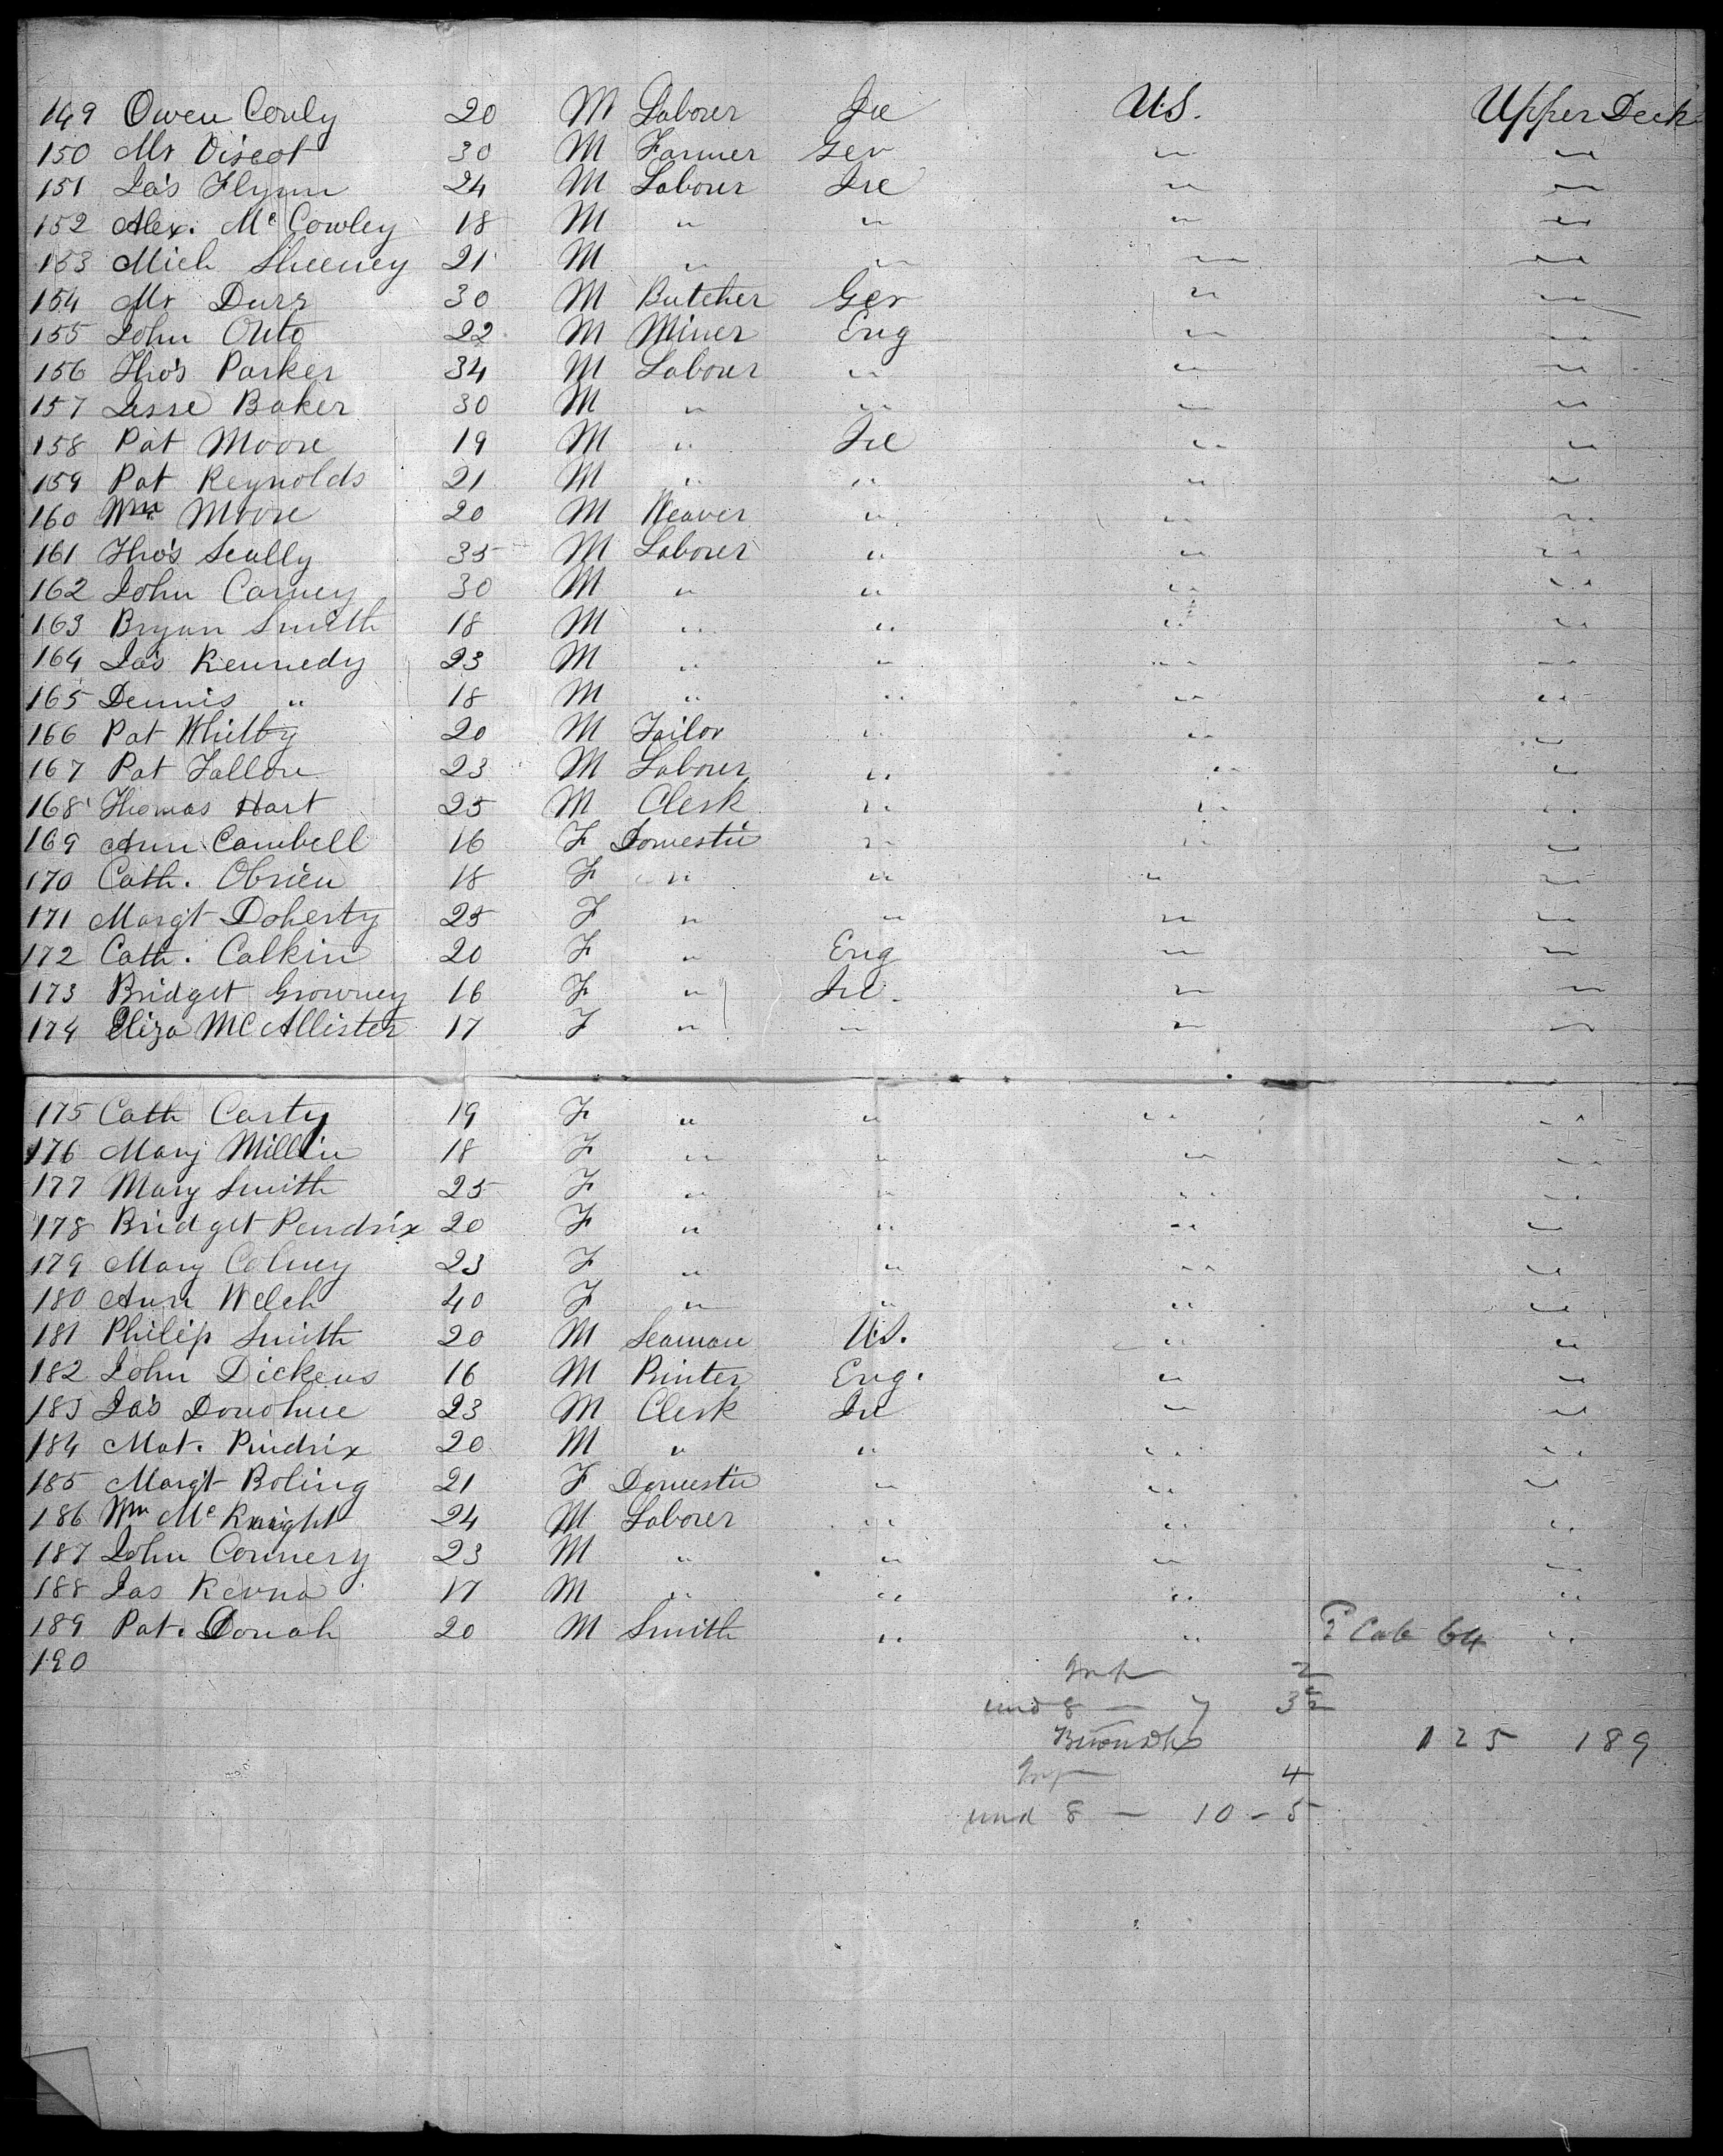 149 Owen Conly 20 M Laborer Ire U.S. Upper Deck
150 Mr Viscot 30 M Farmer Ger " "
151 Ja's Flynn 24 M Laborer Ire " "
152 Alex. McCowley 18 M " " " "
153 Mich Sheeney 21 M " " " "
154 Mr Durr 30 M Butcher Ger " "
155 John Outo 22 M Miner Eng " "
156 Tho's Parker 34 M Laborer " " "
157 Jesse Baker 30 M " " " "
158 Pat Moore 19 M " Ire " "
159 Pat Reynolds 21 M " " " "
160 Wm Moore 20 M Weaver " " "
161 Tho's Scally 35 M Laborer " " "
162 John Carney 30 M " " " "
163 Bryan Smith 18 M " " " "
164 Ja's Kennedy 23 M " " " "
165 Dennis " 18 M " " " "
166 Pat Whitby 20 M Tailor " " "
167 Pat Fallon 23 M Laborer " " "
168 Thomas Hart 25 M Clerk " " "
169 Ann Cambell 16 F Domestic " " "
170 Cath. Obrien 18 F " " " "
171 Margt Doherty 25 F " " " "
172 Cath. Calkin 20 F " Eng " "
173 Bridget Growney 16 F " Ire. " "
174 Eliza McAllister 17 F " " " "
175 Cath Carty 19 F " " " "
176 Mary Millin 18 F " " " "
177 Mary Smith 25 F " " " "
178 Bridget Pendrix 20 F " " " "
179 Mary Colney 23 F " " " "
180 Ann Welch 40 F " " " "
181 Philip Smith 20 M Seaman U.S. " "
182 John Dickens 16 M Printer Eng. " "
183 Ja's Donohue 23 M Clerk Ire " "
184 Mat. Pindrix 20 M " " " "
185 Margt Boling 21 F Domestic " " "
186 Wm McKnight 24 M Laborer " " "
187 John Connery 23 M " " " "
188 Jas Kevna 17 M " " " "
189 Pat. Donah 20 M Smith " " Cab 64 "
190 2
und 8 — 7 3
125 189
4
und 8 — 10 - 5